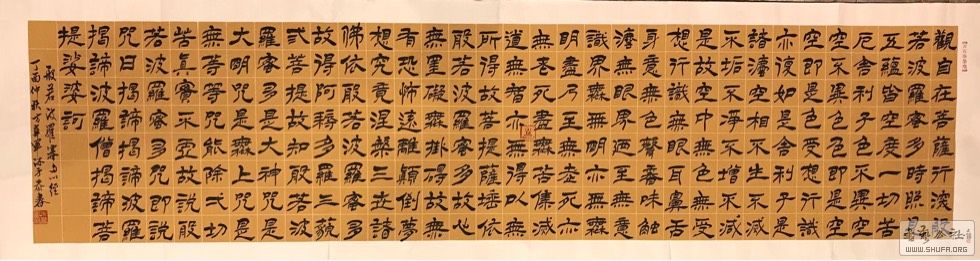 觀自在菩薩行深般
若波羅蜜多時照見
五蘊皆空度一切苦
厄舍利子色不異空
空不異色色即是空
空即是色受想行識
亦復如是舍利子是
諸灋空相不生不滅
不垢不淨不增不減
是故空中無色無受
想行識無眼耳鼻舌
身意無色聲香味觸
灋無眼界乃至無意
識界無無明亦無無
明盡乃至無老死亦
無老死盡無苦集滅
道無智亦無得以無
所得故菩提薩埵依
般若波羅蜜多故心
無挂礙無挂礙故無
有恐怖遠離顛倒夢
想究竟涅槃三世諸
佛依般若波羅蜜多
故得阿耨多羅三藐
弎菩提故知般若波
羅蜜多是大神咒是
大明咒是無上咒是
無等等咒能除弌切
苦真實不虛故說般
若波羅蜜多咒即說
咒曰揭諦揭諦波羅
揭諦波羅僧揭諦菩
提娑婆訶
般若波羅蜜多心經
丁酉仲秋
WWW.SHUFA.ORG